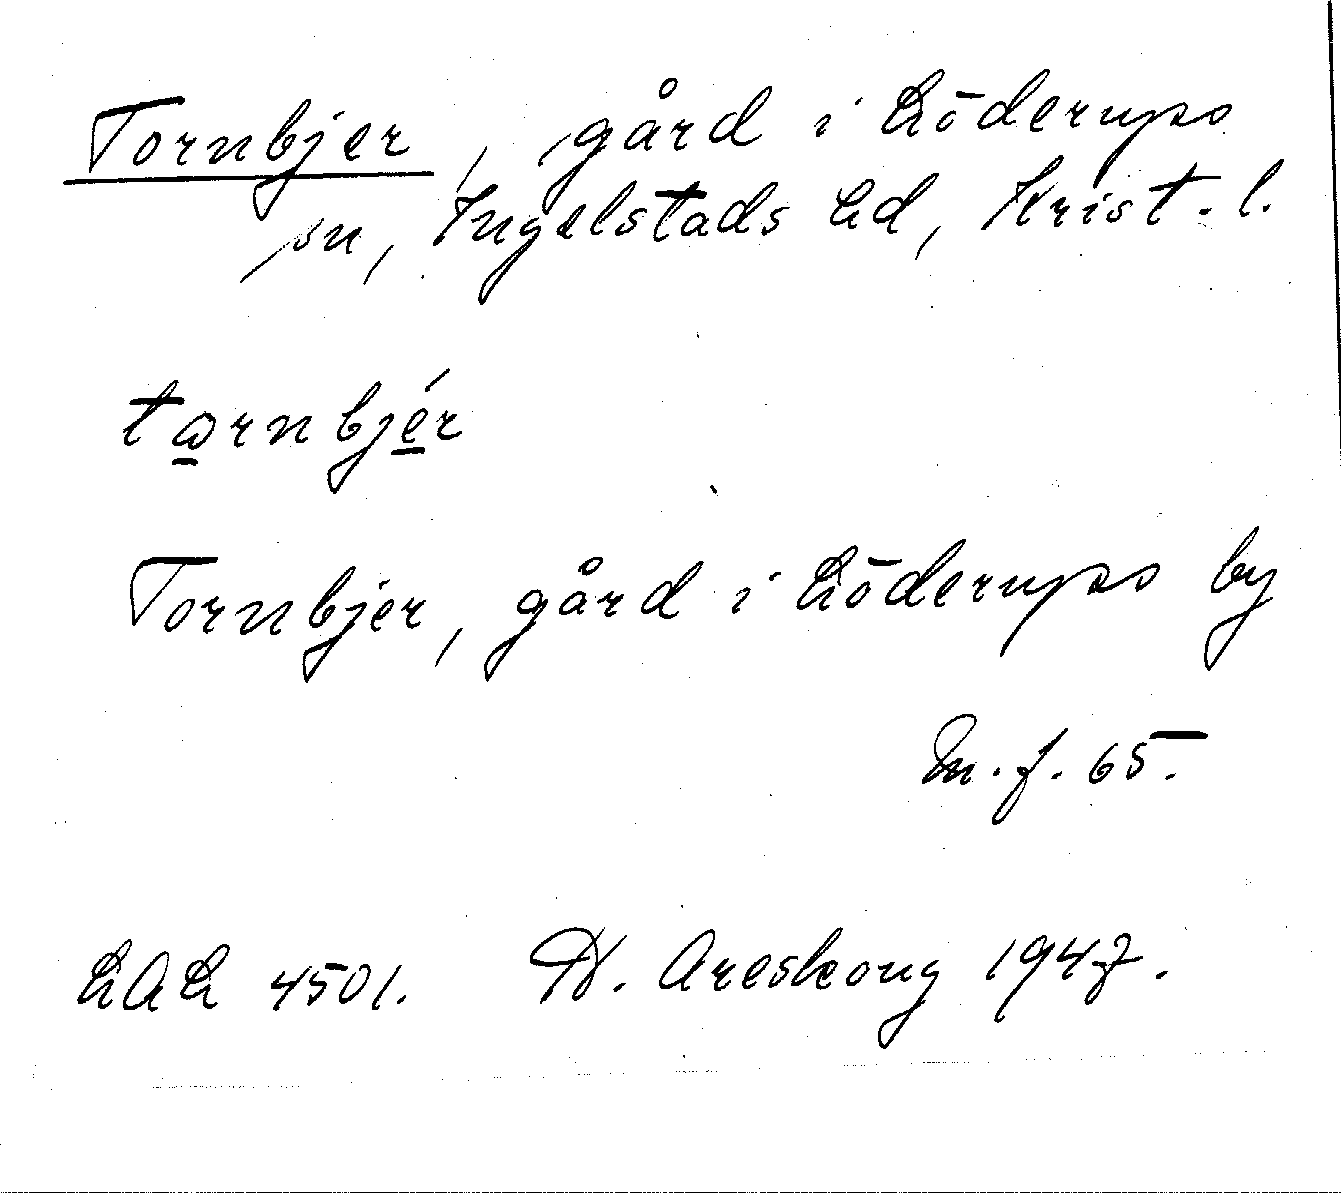 Tornbjer, gård i Löderups
sn, Ingelstads hd, Krist. l.
tɷrnbjér
Tornbjer, gård i Löderups by
m. f. 65.
LAL 4501. N. Areskoug 1947.